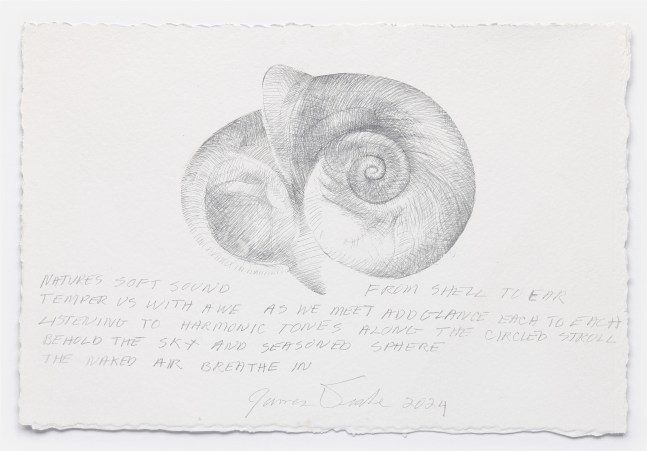 NATURES SOFT SOUND FROM SHELL TO EAR
TEMPER US WITH AWE AS WE MEET ADDGLANCE EACH TO EACH
LISTENING TO HARMONIC TONES ALONG THE CIRCLED STROLL
BEHOLD THE SKY AND SEASONED SPHERE
THE NAKED AIR BREATHE IN
James 2024